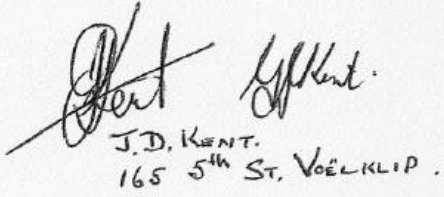 Kent Kent.
J.D. KENT.
165 5th ST. VOËLKLIP.